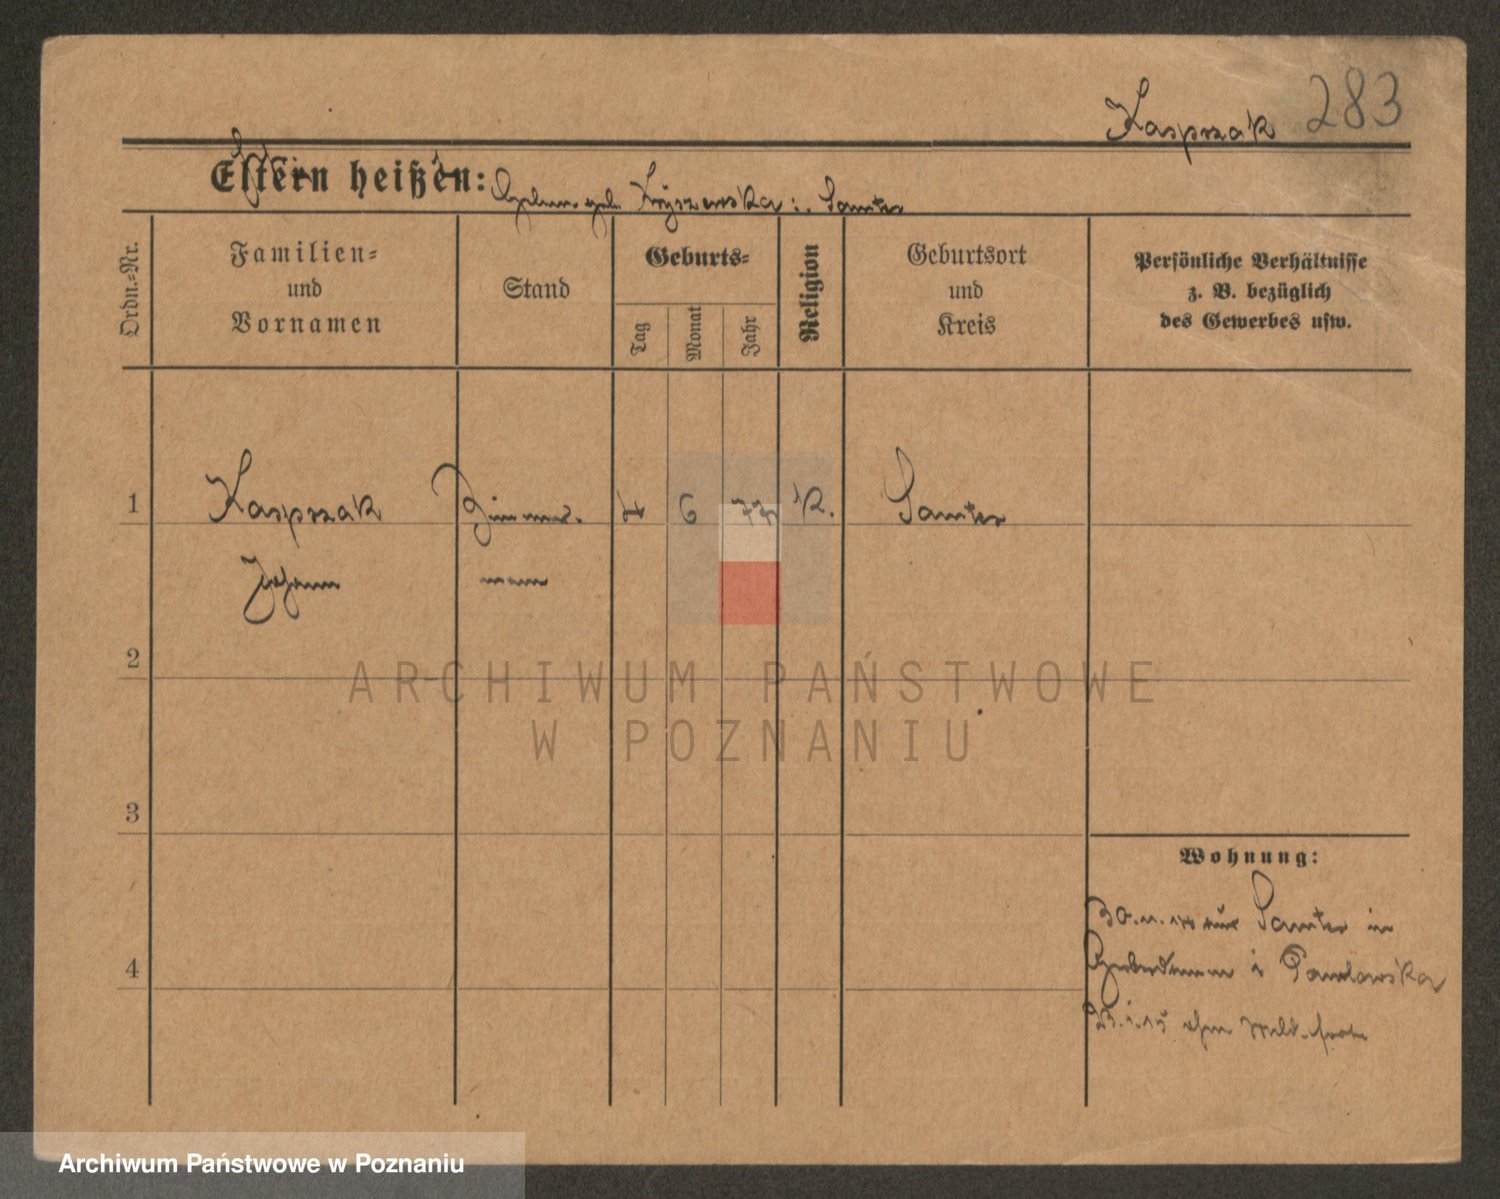 Kasprzak 283
Eltern heißen: geb. Kryszewska i. Samter
Ordn.-Nr.
Familien-
und
Vornamen
Stand
Geburts-
Tag
Monat
Jahr
Religion
Geburtsort
und
Kreis
Persönliche Verhältnisse
z. B. bezüglich
des Gewerbes usw.
1 Kasprzak Zimmer- 4 6 77 K. Samter
Johann mann
2
ARCHIWUM PAŃSTWOWE
W POZNANIU
3
Wohnung:
30.11.14 aus Samter in
4 i Pawlowska
23.1.15 ohne
Archiwum Państwowe w Poznaniu